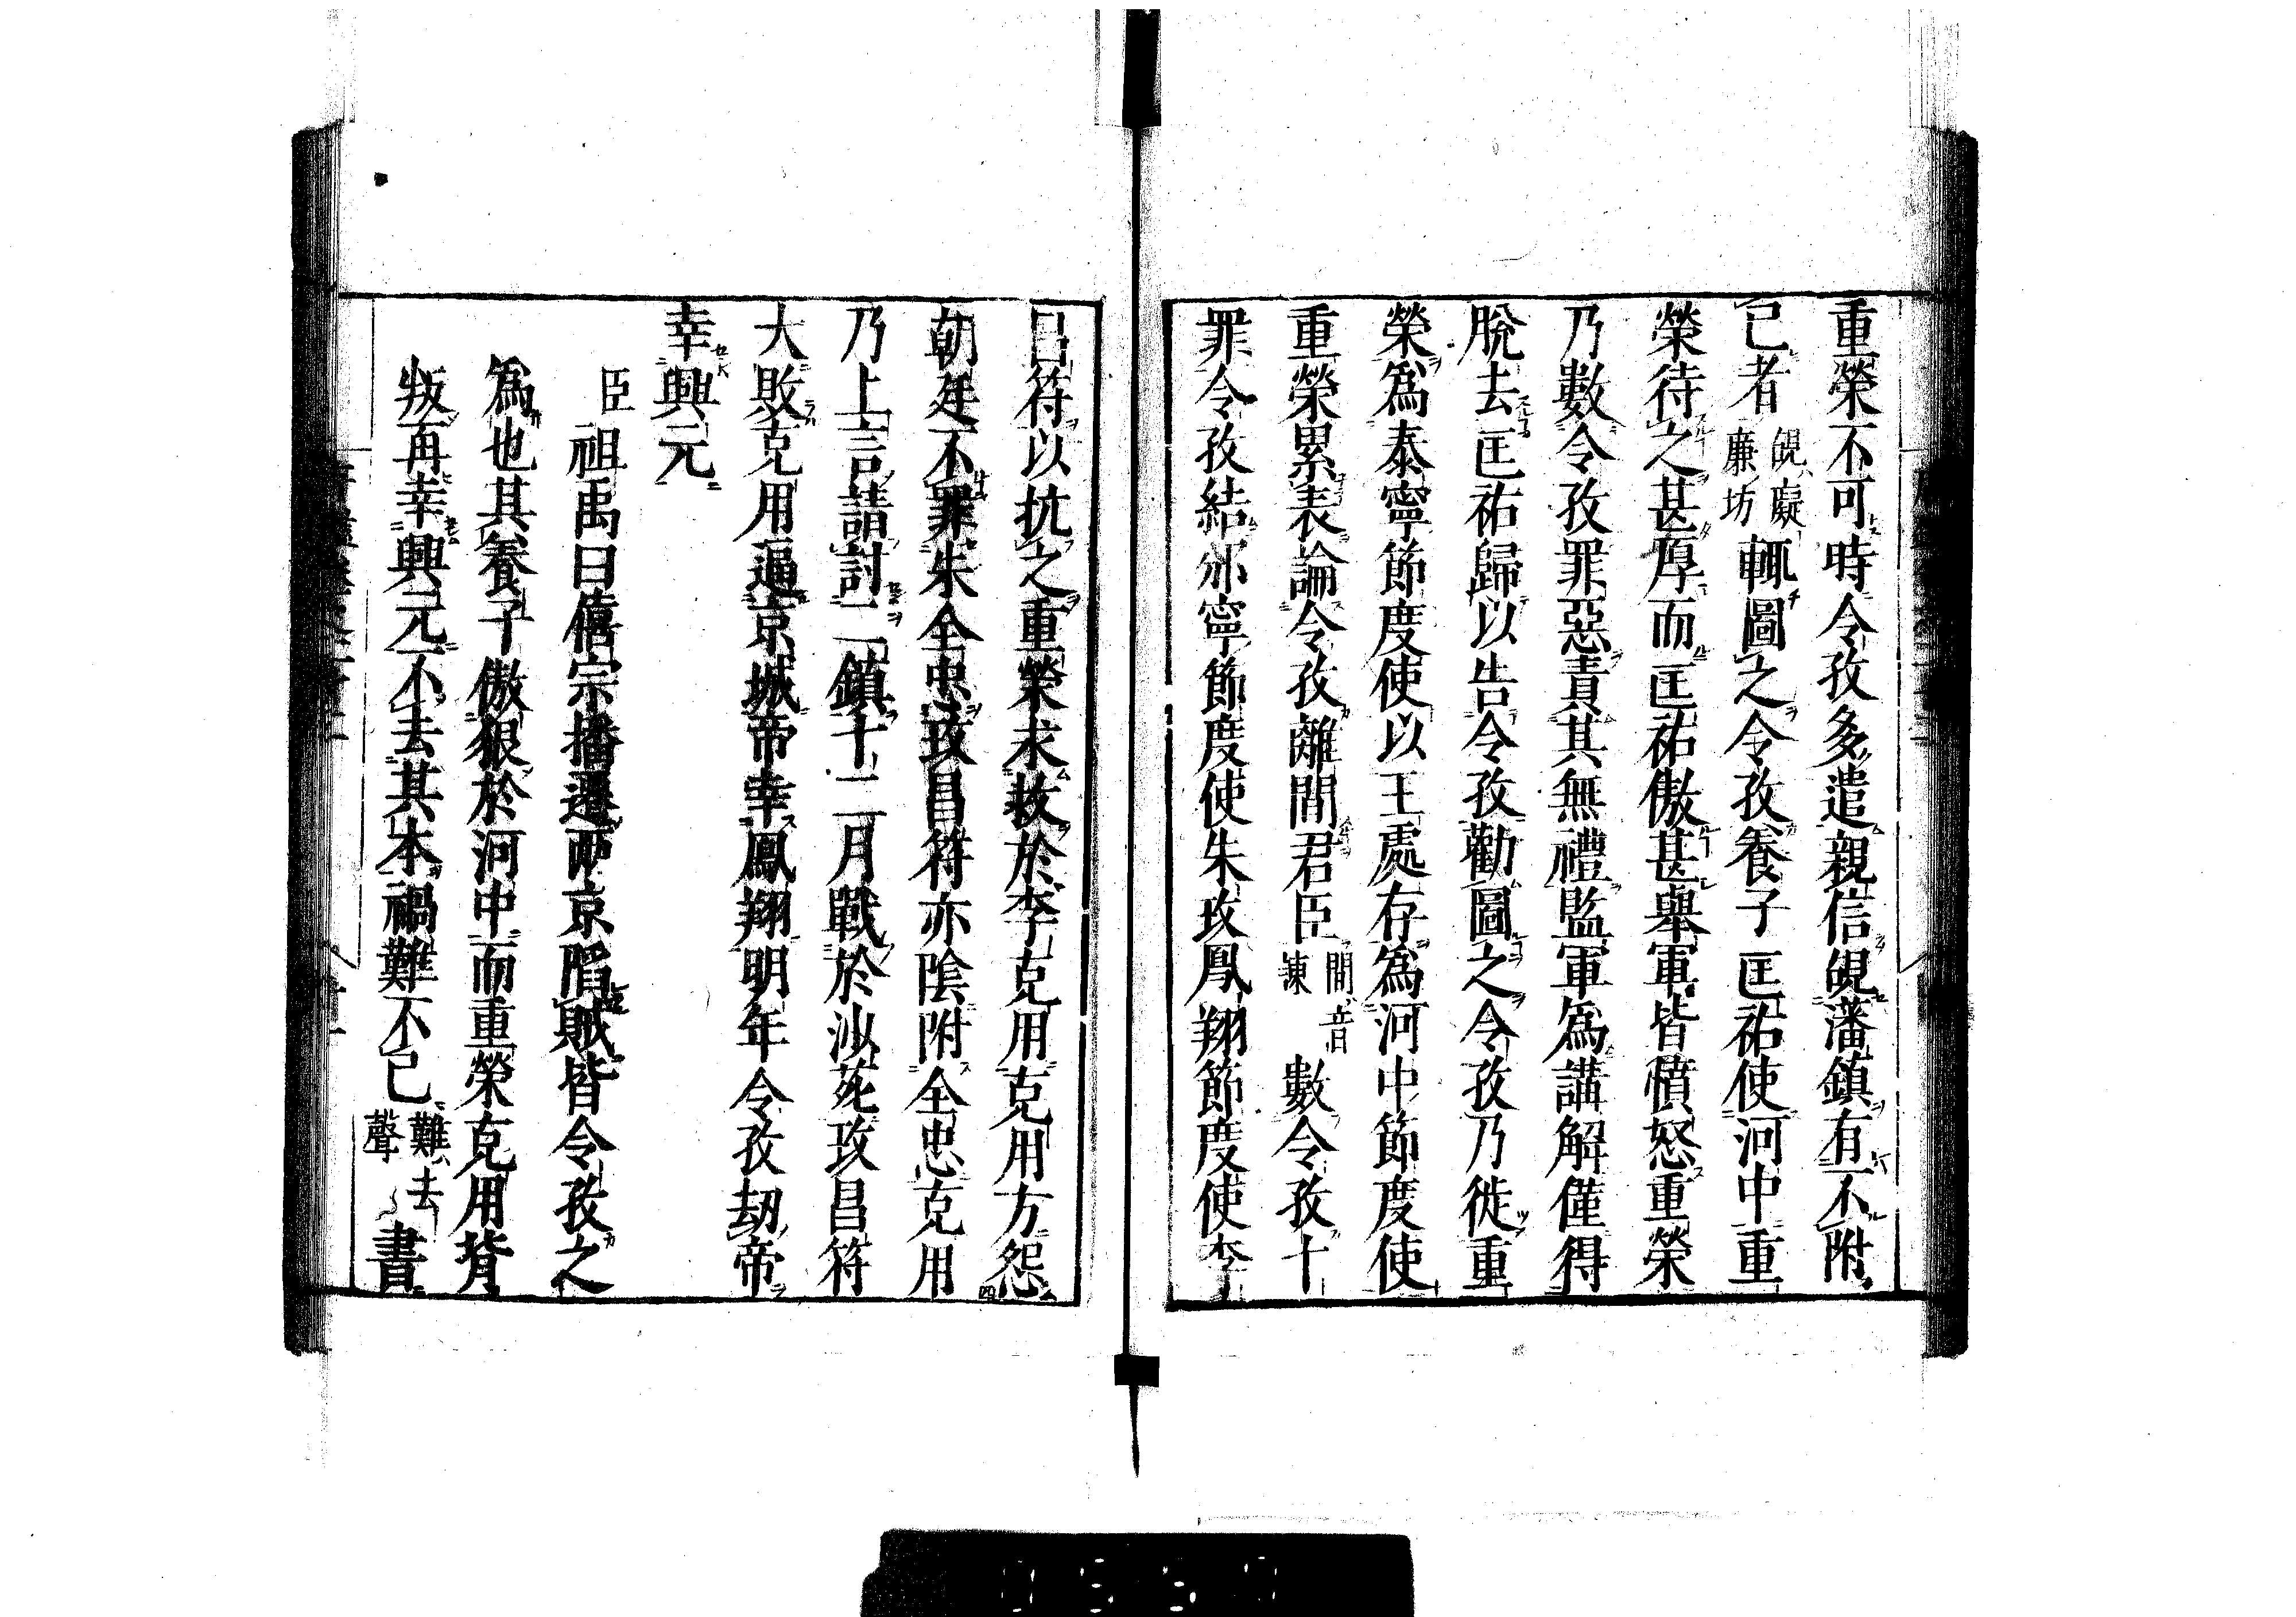 重榮不可時令孜多遣親信覘藩鎮有不附
己者覘癡廉坊輒圖之令孜養子匡祐使河中重
榮待之甚厚而匡祐傲甚舉軍皆憤怒重榮
乃數令孜罪惡責其無禮監軍爲講解僅得
脫去匡祐歸以告令孜勸圖之令孜乃徙重
榮爲泰寧節度使以王處存爲河中節度使
重榮累表論令孜離間君臣間音諫數令孜十
罪令孜結邠寧節度使朱玫鳳翔節度使李
昌符以抗之重榮求救於李克用克用方怨
朝廷不罪朱全忠玫昌符亦陰附全忠克用
乃上言請討二鎮十二月戰於沙苑玫昌符
大敗克用逼京城帝幸鳳翔明年令孜劫帝
幸興元
臣祖禹曰僖宗播遷兩京陷賊皆令孜之
爲也其養子傲狠於河中而重榮克用背
叛再幸興元不去其本禍難不已難去聲書